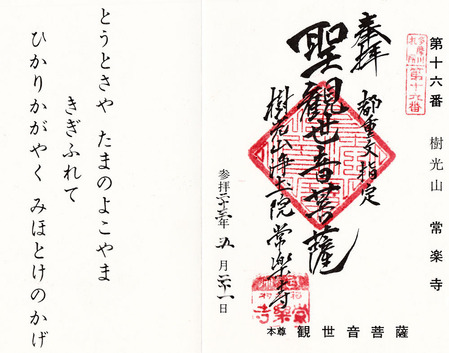 第十六番 樹光山 常楽寺
多摩川
第十六番
奉拝
都重文指定
聖観世音菩薩
樹光山浄土院常楽寺
参拝二十三年 月二十一日
本尊 観世音菩薩
とうとさや たまのよこやま
きぎふれて
ひかりかがやく みほとけのかげ